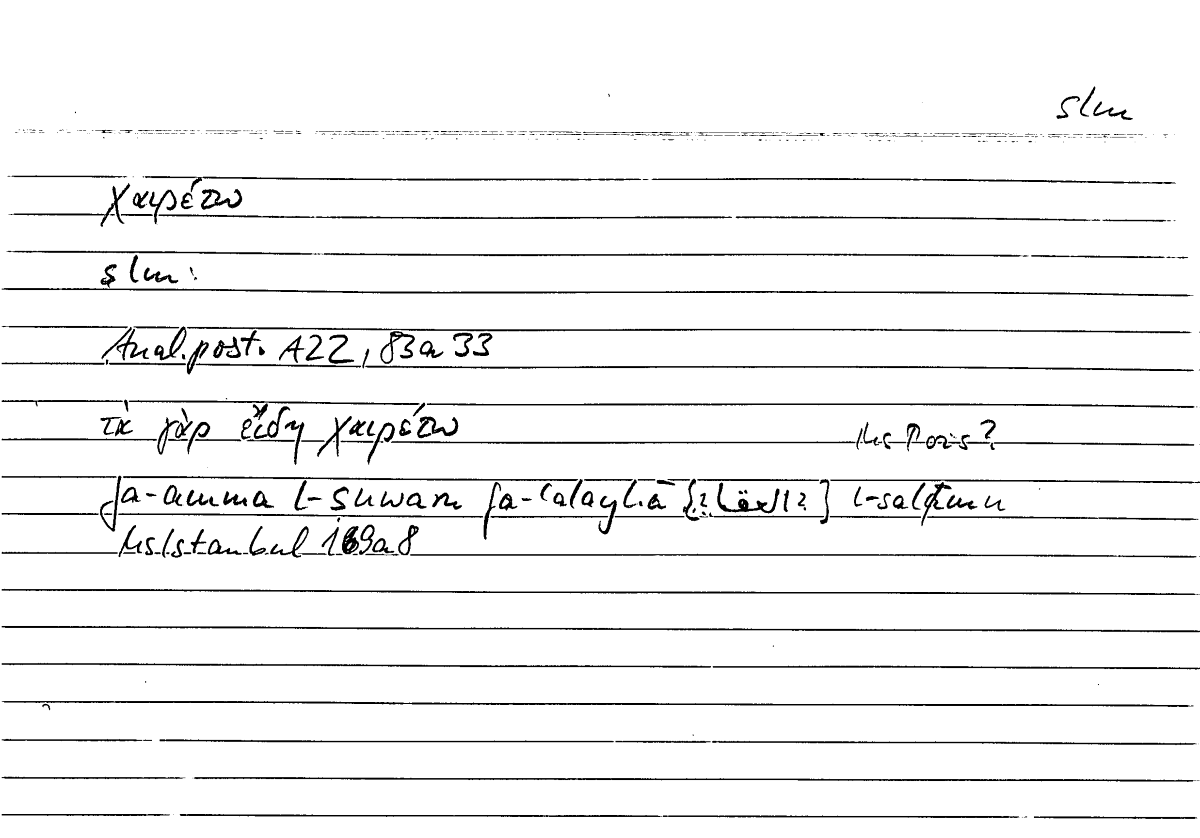 slm
χαιρέτω
slm:
Anal. post. A22, 83a33
τὰ γὰρ εἴδη χαιρέτω
Ms Paris?
fa-amma l-suwaru fa-ʿalayhā l-salāmu
Ms Istanbul 169a8